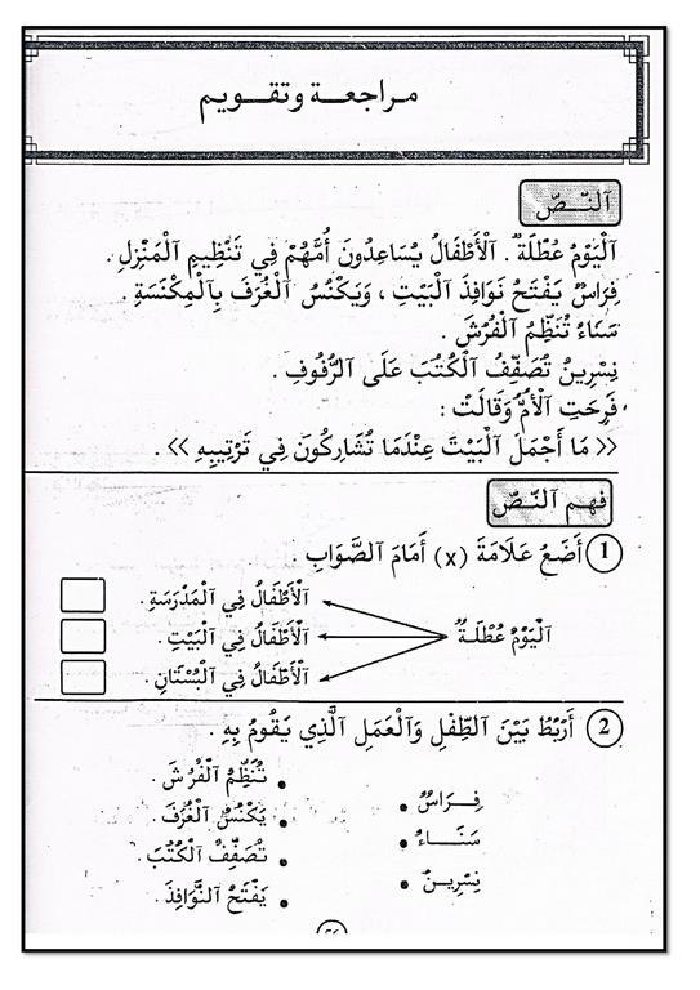 مراجعة وتقويم
اَلنَّصّ
اَلْيَوْمُ عُطْلَةٌ . اَلْأَطْفَالُ يُسَاعِدُونَ أُمَّهُمْ فِي تَنْظِيمِ اَلْمَنْزِلِ .
فِرَاسٌ يَفْتَحُ نَوَافِذَ اَلْبَيْتِ ، وَيَكْنُسُ اَلْغُرَفَ بِاَلْمِكْنَسَةِ .
سَنَاءُ تُنَظِّمُ اَلْفُرُشَ .
نِسْرِينُ تُصَفِّفُ اَلْكُتُبَ عَلَى اَلرُّفُوفِ .
فَرِحَتِ اَلْأُمُّ وَقَالَتْ :
« مَا أَجْمَلَ اَلْبَيْتَ عِنْدَمَا تُشَارِكُونَ فِي تَرْتِيبِهِ » .
فهم اَلنَّصّ
1 أَضَعُ عَلَامَةَ (x) أَمَامَ اَلصَّوَابِ .
اَلْأَطْفَالُ فِي اَلْمَدْرَسَةِ .
اَلْيَوْمُ عُطْلَةٌ اَلْأَطْفَالُ فِي اَلْبَيْتِ .
اَلْأَطْفَالُ فِي اَلْبُسْتَانِ .
2 أَرْبُطُ بَيْنَ اَلطِّفْلِ وَاَلْعَمَلِ اَلَّذِي يَقُومُ بِهِ .
تُنَظِّمُ اَلْفُرُشَ .
فِرَاسٌ •
• يَكْنُسُ اَلْغُرَفَ .
سَنَاءُ •
• تُصَفِّفُ اَلْكُتُبَ .
نِسْرِينُ •
• يَفْتَحُ اَلنَّوَافِذَ .